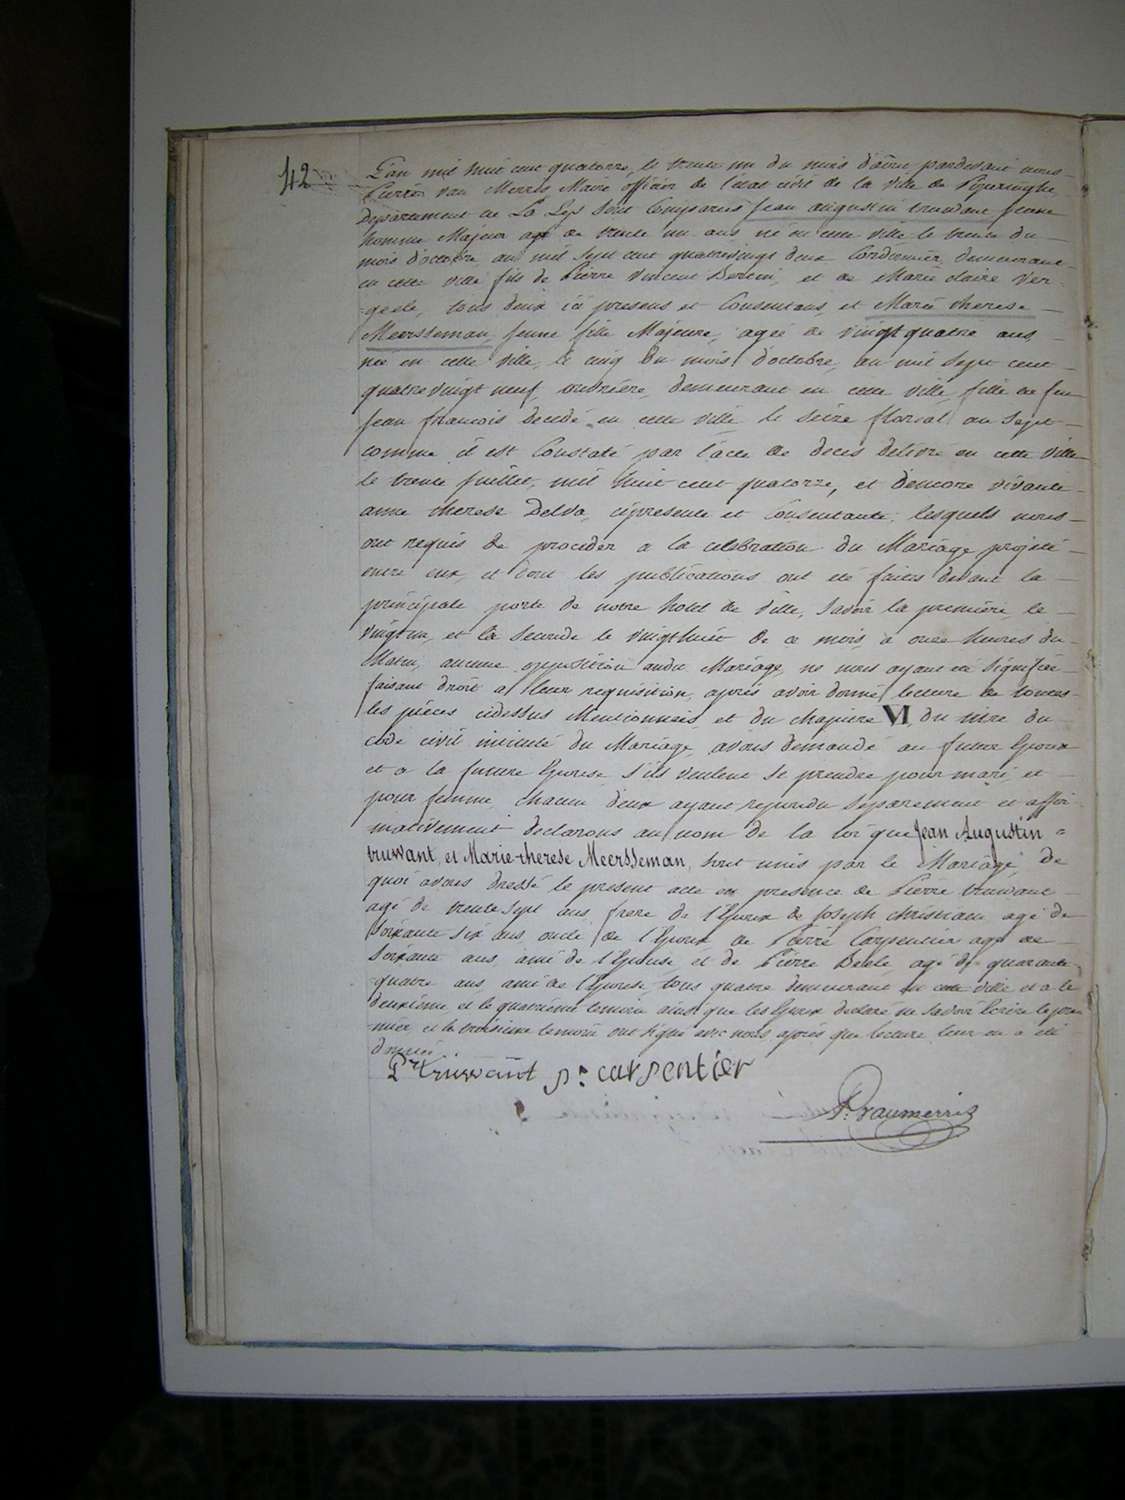 42
L'an mil huit cent quatorze, le trente un du mois d'août pardevant nous
Pierre van Merris Maire officier de l'état civil de la ville de Poperinghe,
département de La Lys sont Comparus Jean augustin truwant jeune
homme Majeur agé de trente un ans né en cette ville le trente du
mois d'octobre an mil sept cent quatrevingt deux Cordonnier, demeurant
en cette ville fils de Pierre Vincent et de Marie claire Ver-
-geele, tous deux ici presens et Consentans, et Marie therese
Meersseman, jeune fille Majeure, agée de vingt quatre ans
née en cette ville, le cinq du mois d'octobre, an mil sept cent
quatrevingt neuf, ouvrière, demeurant en cette ville, fille de feu
jean francois decedé en cette ville le seize floreal an sept
comme il est Constaté par l'acte de deces delivré en cette ville
le trente juillet, mil huit cent quatorze, et d'encore vivante
anne therese Delva, cipresente et Consentante, lesquels nous
ont requis de proceder a la celebration du Mariage projeté
entre eux, et dont les publications ont été faites devant la
principale porte de notre hotel de ville, savoir la premiere, le
vingt un, et la seconde le vingt huit de ce mois, a onze heures du
Matin, aucune opposition audit Mariage, ne nous ayant été signifiée
faisant droit a leur requisition, après avoir donné lecture de toutes
les pièces cidessus Mentionnées, et du chapitre VI, du titre du
code civil intitulé du Mariage, avons demandé au futur Epoux
et a la future Epouse s'ils veulent se prendre pour mari, et
pour femme, chacun d'eux ayant repondu separement et affir-
mativement declarons au nom de la loi que Jean Augustin
truwant, et Marie-therese Meersseman, sont unis par le Mariage, de
quoi avons dressé le present acte en presence de Pierre truwant
agé de trente sept ans, frere de l'Epoux de Joseph christiaen agé de
soixante six ans oncle de l'Epoux, de Pierre Carpentier agé de
soixante ans, ami de l'Epouse, et de Pierre Beele, agé de quarante
quatre ans, ami de l'Epouse, tous quatre demeurant en cette ville et a le
deuxième et le quatrième temoin ainsi que les Epoux declaré ne savoir écrire le pre-
mier et le troisième temoin ont signé avec nous, après que lecture leur en a été
donnée.
Pr truwant pr carpentier
P. vanmerris